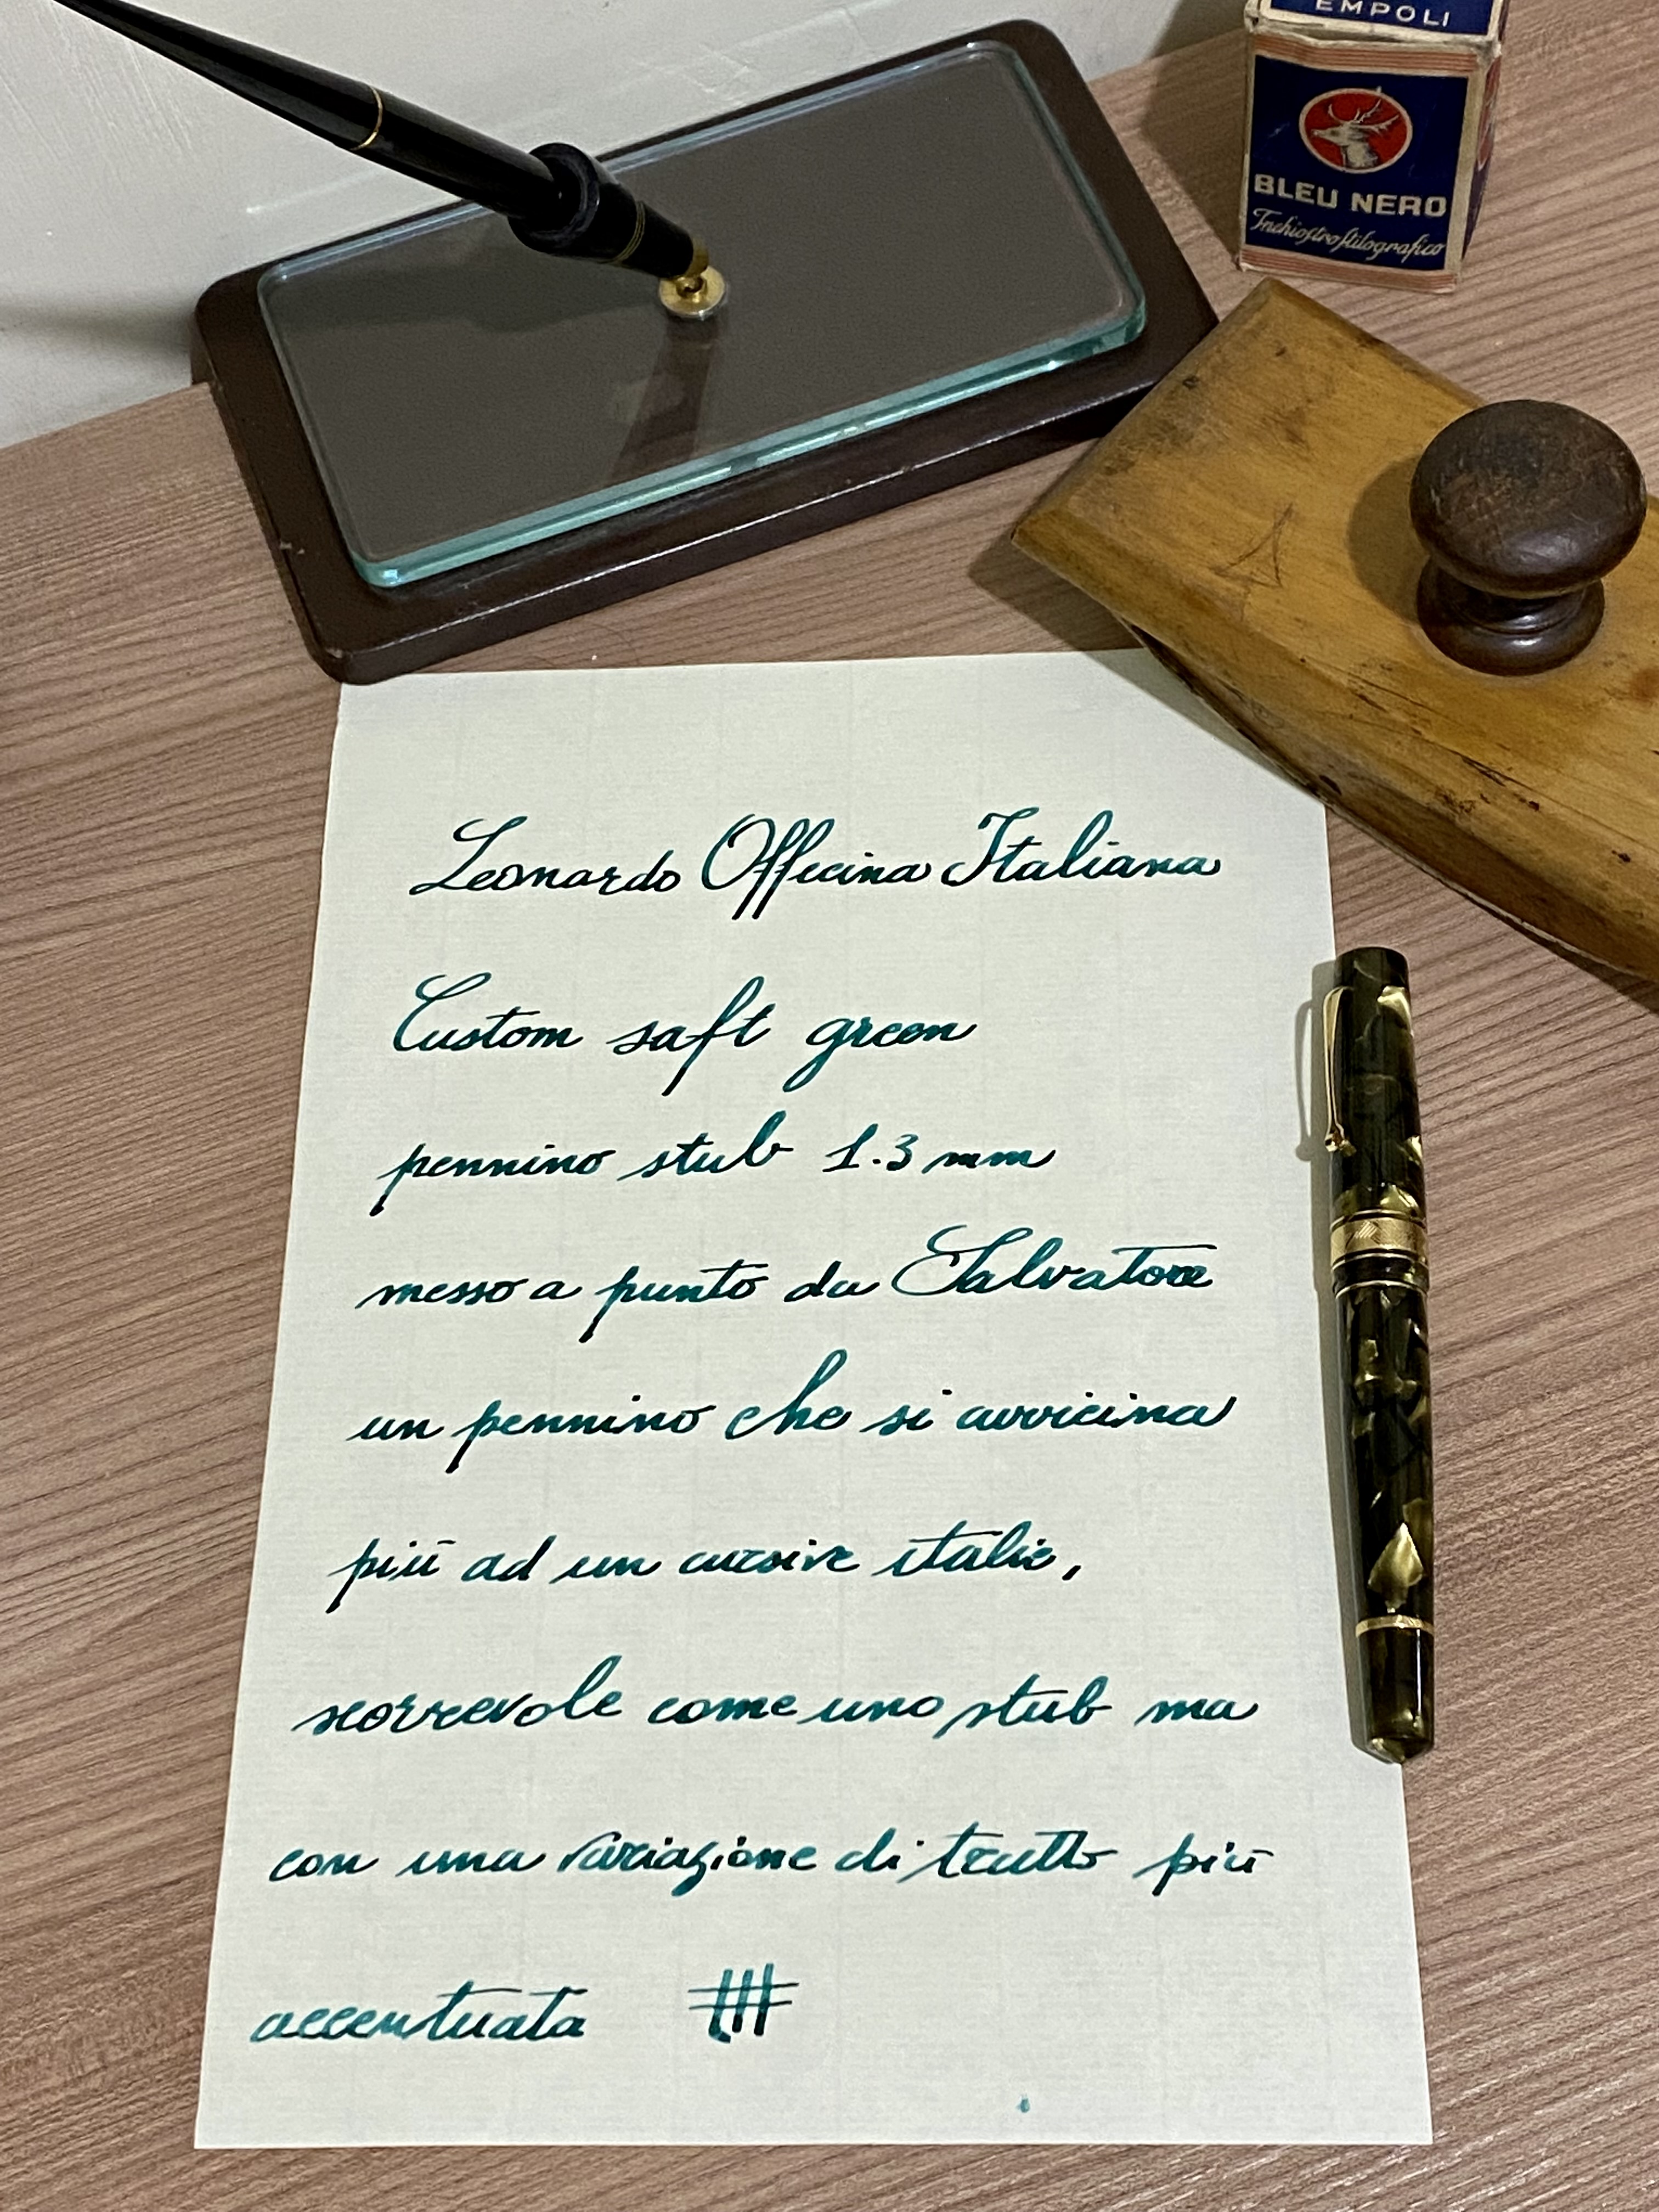 EMPOLI
BLEU NERO
Inchiostro stilografico
Leonardo Officina Italiana
Custom saft green
pennino stub 1.3 mm
messo a punto da Salvatore
un pennino che si avvicina
più ad un cursive italic,
scorrevole come uno stub ma
con una variazione di tratto più
accentuata